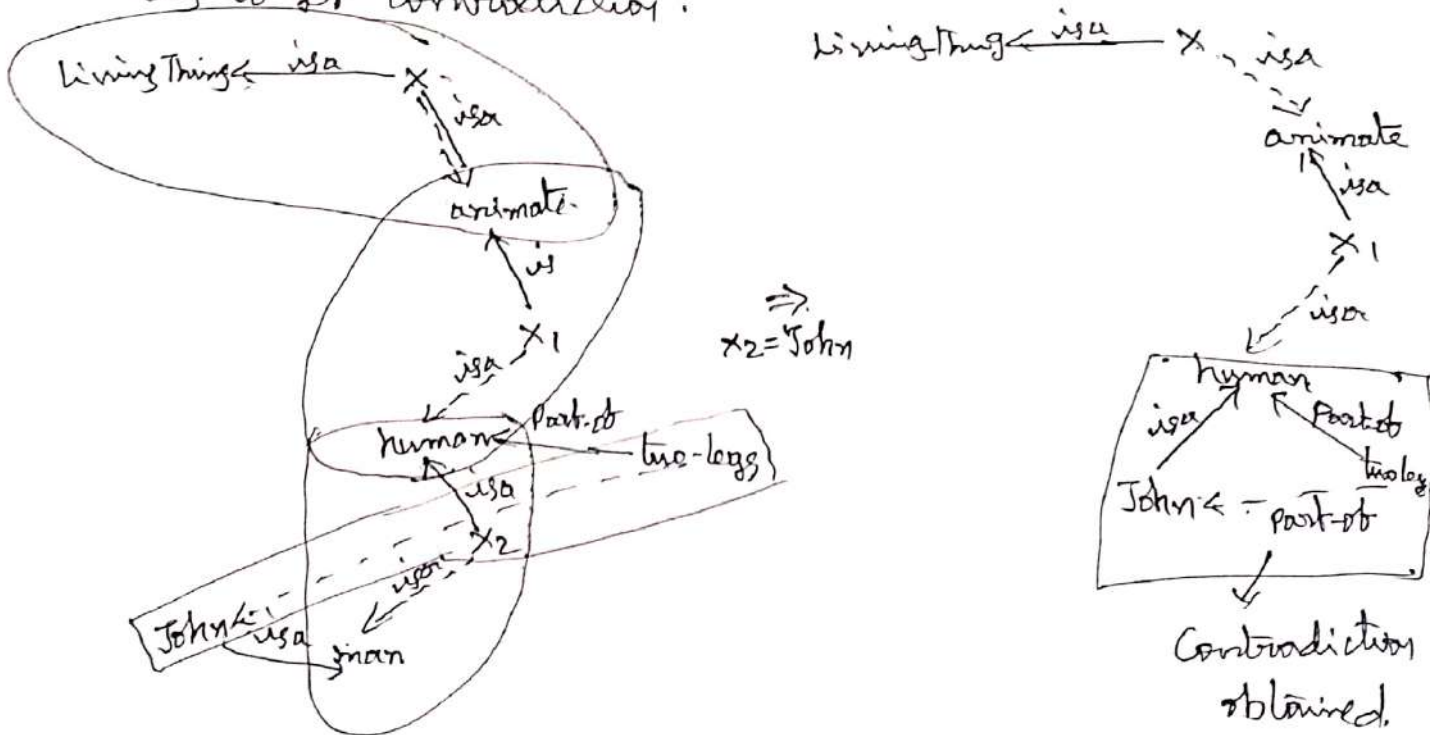 contradiction.
Living Thing isa X
isa
animate.
is
X1
isa
human Part-of two-legs
isa
X2
isa
John isa man
⇒
X2 = John
Living Thing isa X
isa
animate
isa
X1
isa
human
isa Part-of
John two legs
Part-of
Contradiction
obtained.